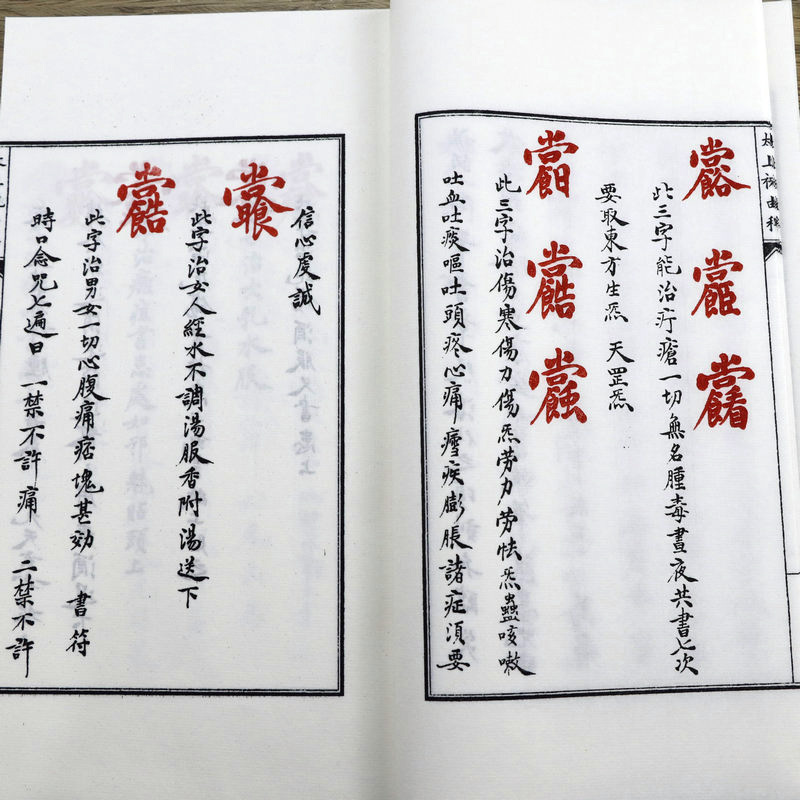 此三字能治疔瘡一切無名腫毒晝夜共書七次
要取東方生炁 天罡炁
此三字治傷寒傷力傷炁勞力勞怯炁蠱咳嗽
吐血吐痰嘔吐頭疼心痛瘽疾膨脹諸症須要
信心虔誠
此字治女人經水不調湯服香附湯送下
此字治男女一切心腹痛痞塊甚効 書符
時口念咒七遍曰 一禁不許痛 二禁不許